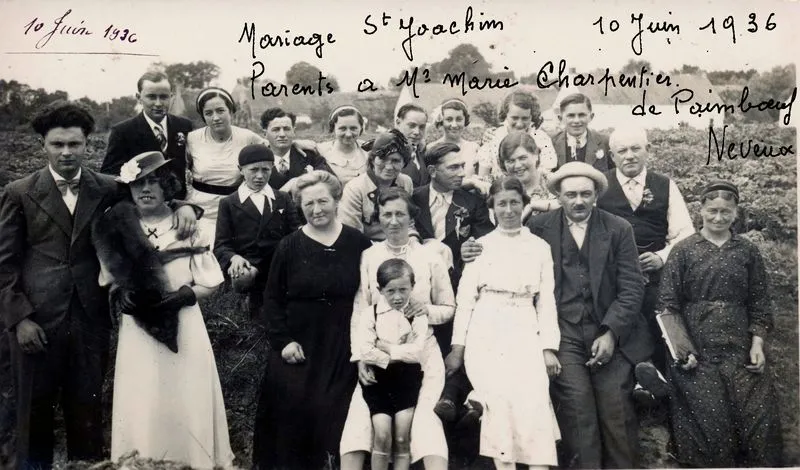 10 Juin 1936
Mariage St Joachim 10 Juin 1936
Parents a Ma Marie Charpentier.
de Paimbœuf
Neveux